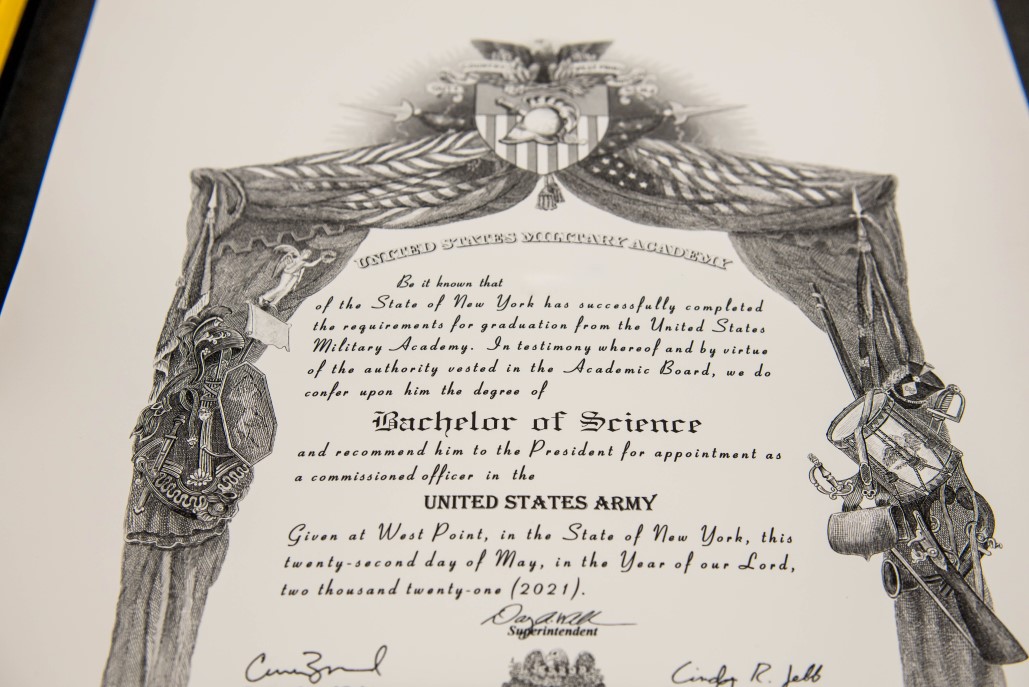 UNITED STATES MILITARY ACADEMY
Be it known that
of the State of New York has successfully completed
the requirements for graduation from the United States
Military Academy. In testimony whereof and by virtue
of the authority vested in the Academic Board, we do
confer upon him the degree of
Bachelor of Science
and recommend him to the President for appointment as
a commissioned officer in the
UNITED STATES ARMY
Given at West Point, in the State of New York, this
twenty-second day of May, in the Year of our Lord,
two thousand twenty-one (2021).
Superintendent
Cindy R. Jebb